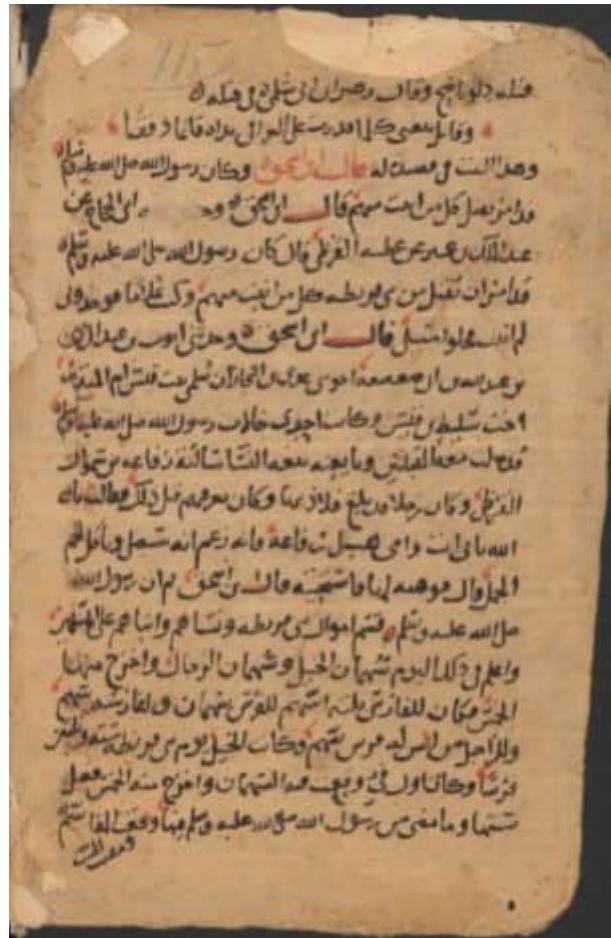 قتله دلو ناضح وقال زهير ابن ابي سلمى في قتله
وقابل يتغنى كلما قدرت على العراقي يداه قائما دفقا
وهذا البيت في قصيدة له قال ابن اسحق وكان رسول الله صلى الله عليه وسلم
قد امر بقتل كل من انبت منهم قال ابن اسحق وحدثني ابن الحجاج عن
عبد الملك بن عمير عن عطية القرظي قال كان رسول الله صلى الله عليه وسلم
قد امر ان يقتل من بني قريظة كل من انبت منهم وكنت غلاما فوجدوني
لم انبت فخلوا سبيلي قال ابن اسحق وحدثني ايوب بن عبد الرحمن
بن عبد الله بن ابي صعصعة اخو بني عدي بن النجار ان سلمى بنت قيس ام المنذر
اخت سليط بن قيس وكانت احدى خالات رسول الله صلى الله عليه وسلم
قد صلت معه القبلتين وبايعته بيعة النساء سالته رفاعة بن سموال
القرظي وكان رجلا قد بلغ فلاذ بها وكان يعرفهم قبل ذلك فقالت يا نبي
الله بابي انت وامي هب لي رفاعة فانه زعم انه سيصلي وياكل لحم
الجمل قال فوهبه لها فاستحيته قال ابن اسحق ثم ان رسول الله
صلى الله عليه وسلم قسم اموال بني قريظة ونساهم وابناهم على المسلمين
واعلم في ذلك اليوم سهمان الخيل وسهمان الرجال واخرج منها
الخمس فكان للفارس ثلثة اسهم للفرس سهمان ولفارسه سهم
وللراجل من ليس له فرس سهم وكانت الخيل يوم بني قريظة ستة وثلثين
فرسا وكان اول في وقعت فيه السهمان واخرج منه الخمس فعلى
سنتها وما مضى من رسول الله صلى الله عليه وسلم فيها وقعت المقاسم